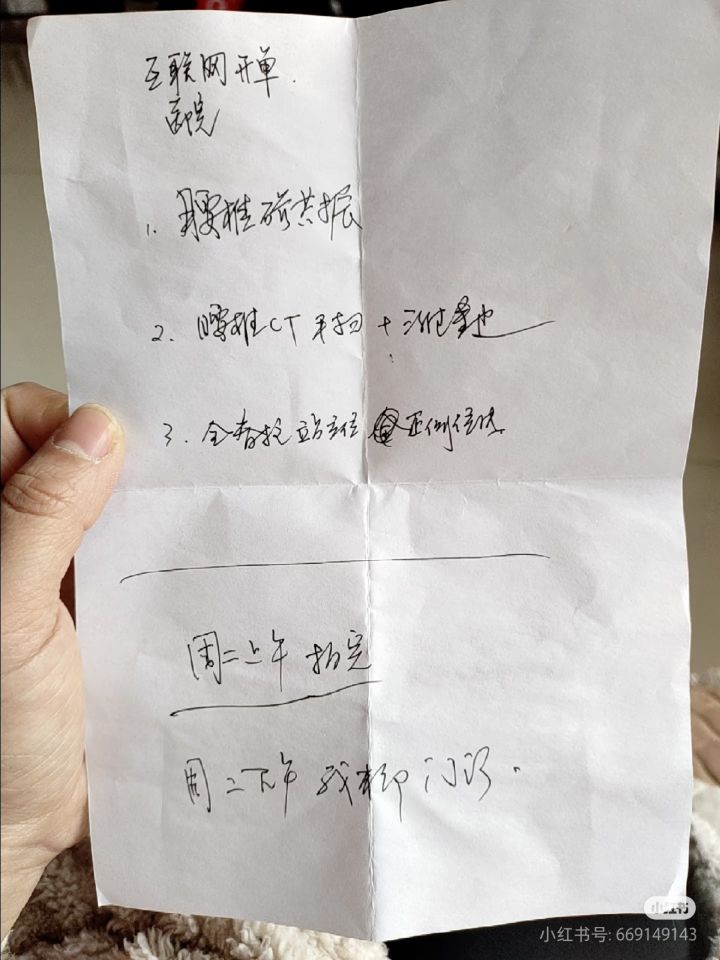 互联网开单.
医院
1. 腰椎磁共振
2. 腰椎CT平扫+三维重建
3. 全脊柱站立位正侧位片.
周二上午 拍完
周二下午 我 门诊.
小红书
小红书号: 669149143